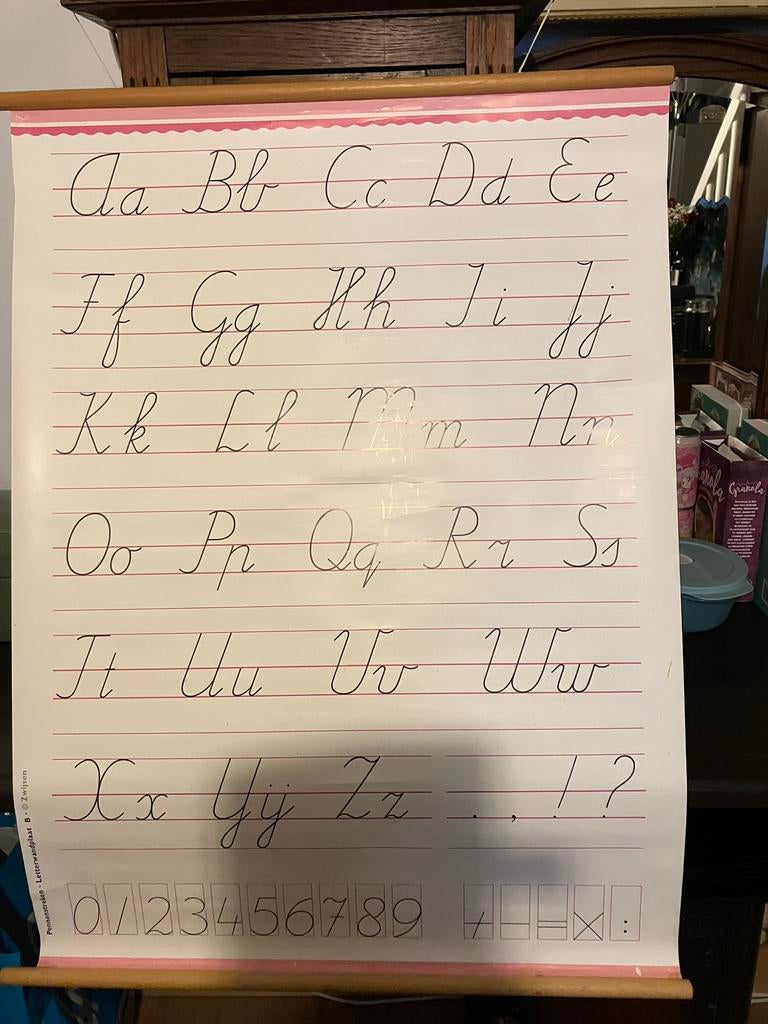 Aa Bb Cc Dd Ee
Ff Gg Hh Ii Jj
Kk Ll Mm Nn
Oo Pp Qq Rr Ss
Tt Uu Vv Ww
Xx Yij Zz . , ! ?
0 1 2 3 4 5 6 7 8 9 + − = × :
Pennenstreken • Letterwandplaat B • © Zwijsen
Granola